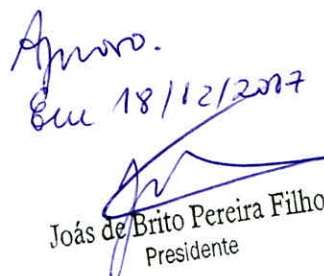 Aprovo.
Em 18/12/2017
Joás de Brito Pereira Filho
Presidente